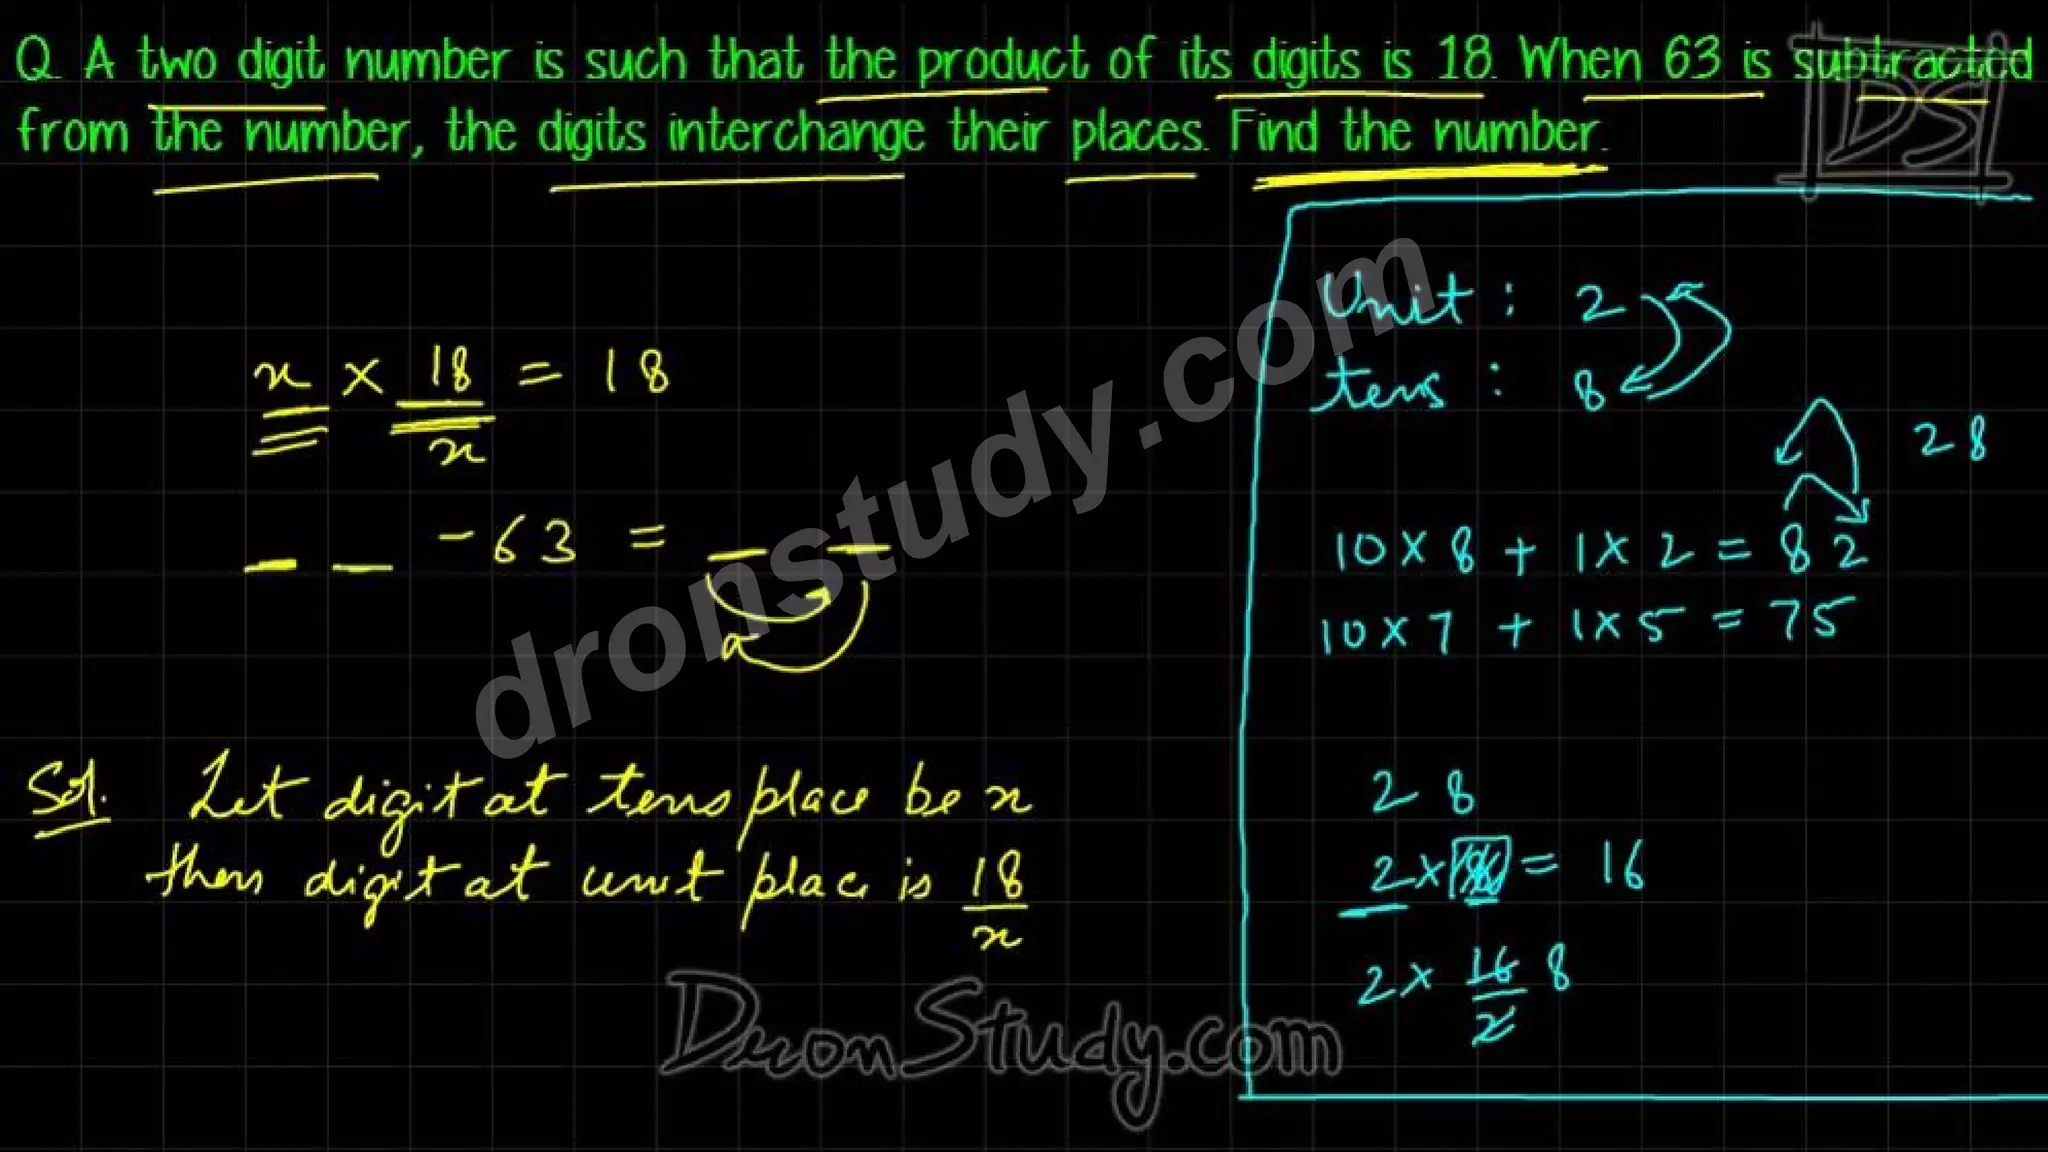 Q. A two digit number is such that the product of its digits is 18. When 63 is subtracted
from the number, the digits interchange their places. Find the number.
DS
x × 18/x = 18
_ _ - 63 = _ _
Sol. Let digit at tens place be x
then digit at unit place is 18/x
Unit : 2
tens : 8
28
10 × 8 + 1 × 2 = 82
10 × 7 + 1 × 5 = 75
28
2 × = 16
2 × 16/2 8
dronstudy.com
DronStudy.com